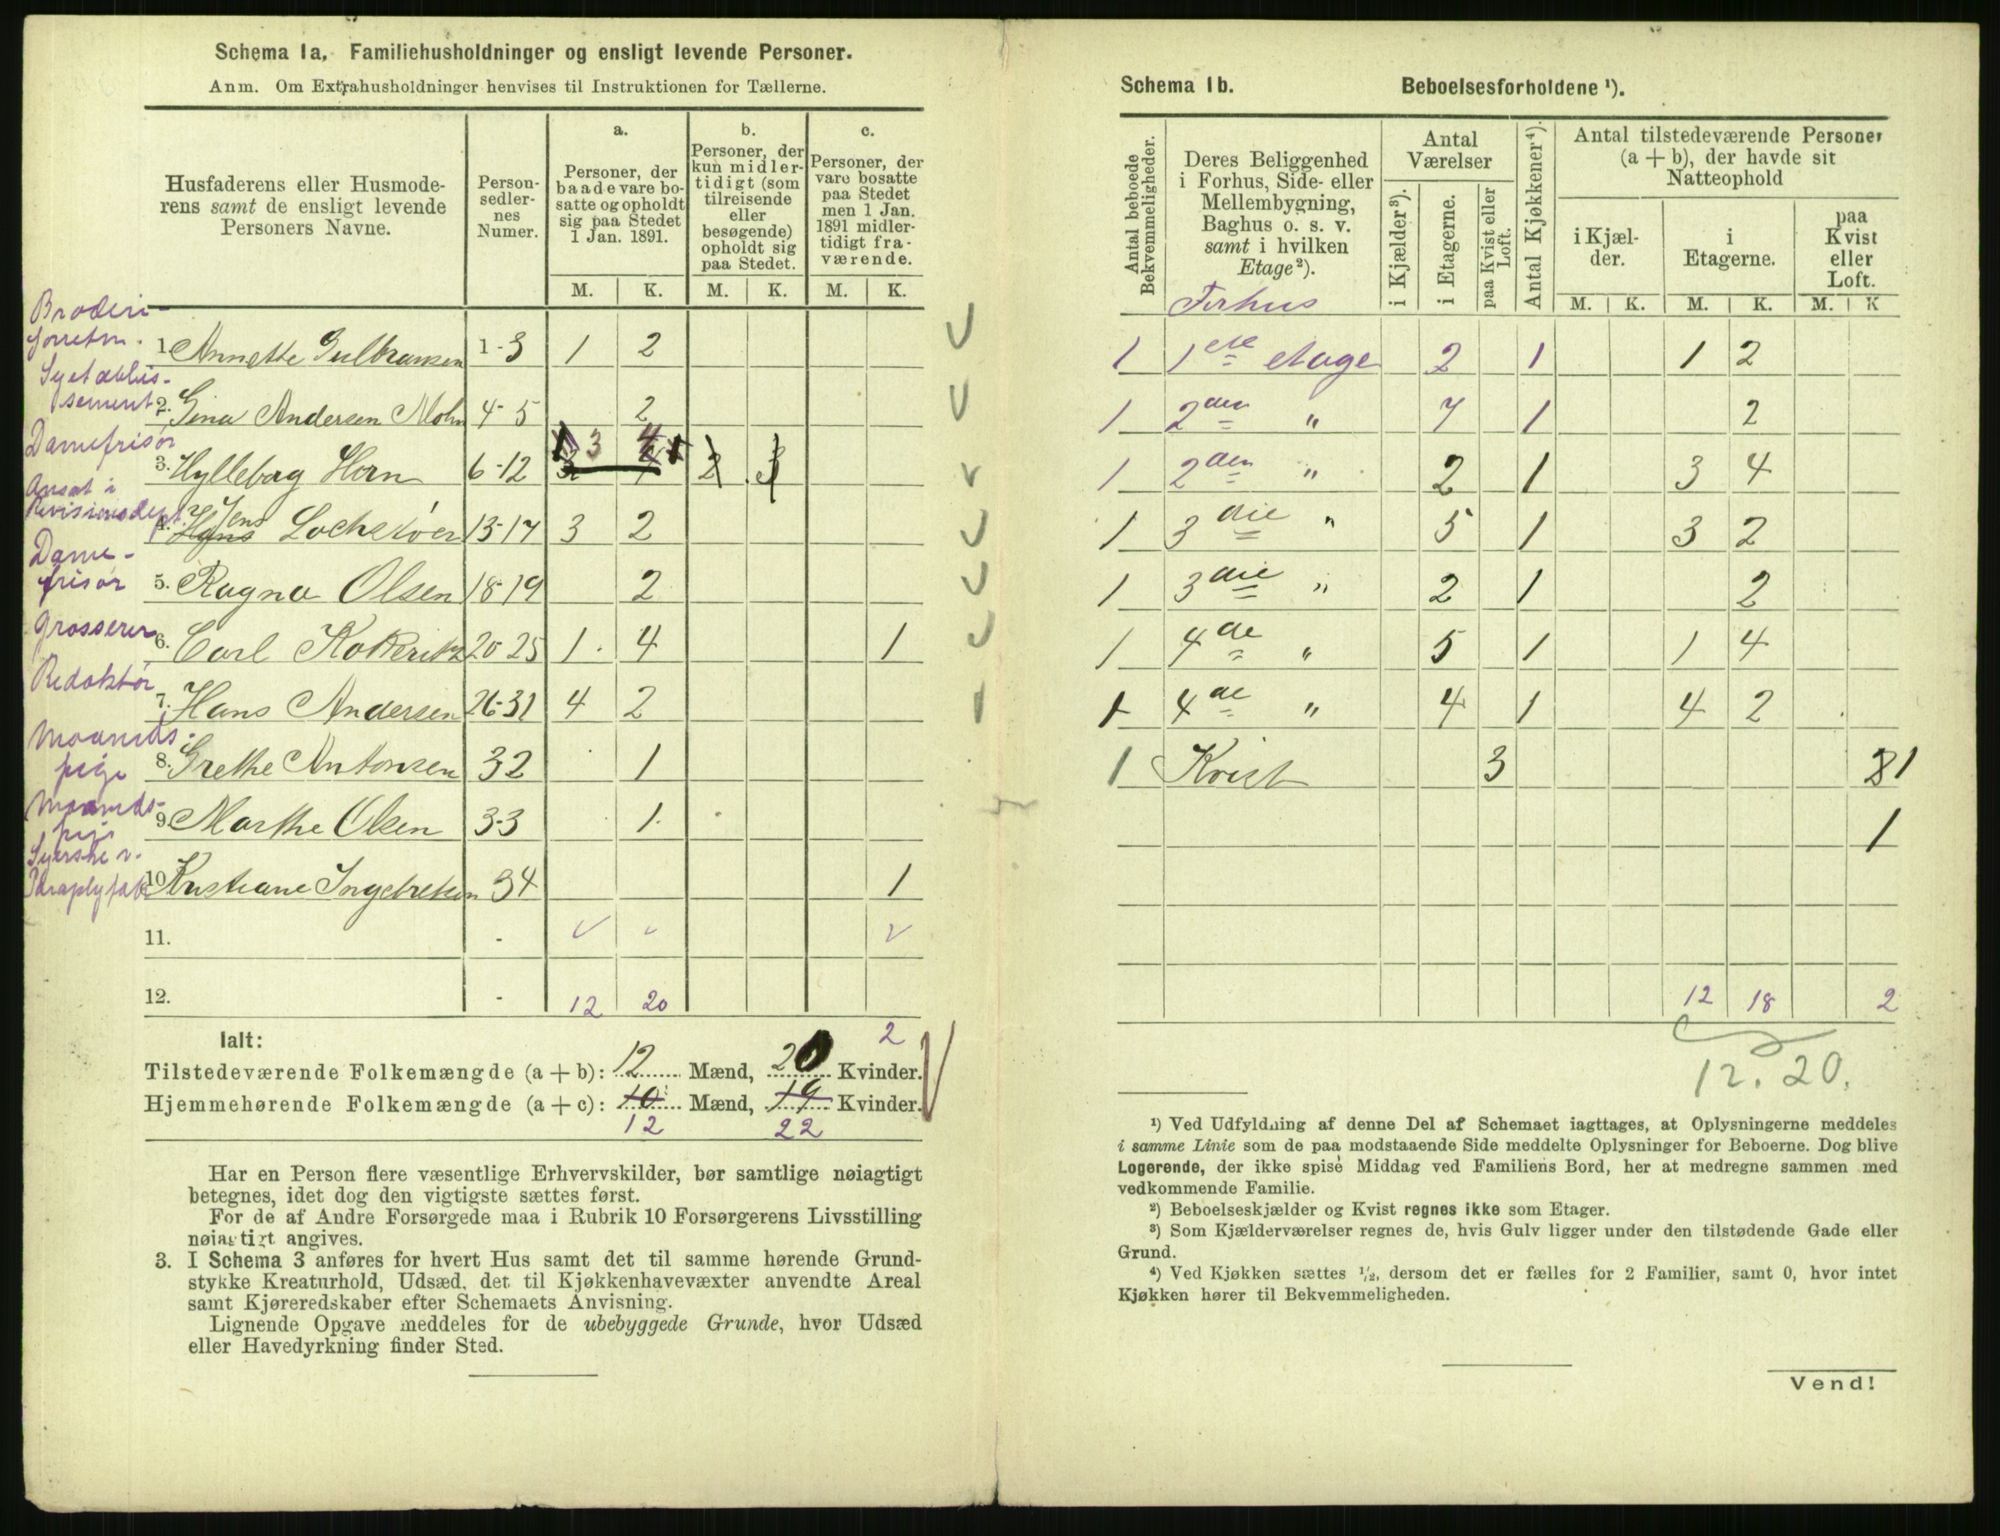 Schema 1a. Familiehusholdninger og ensligt levende Personer.
Anm. Om Extrahusholdninger henvises til Instruktionen for Tællerne.
Husfaderens eller Husmoderens samt de ensligt levende Personers Navne.
Personsedlernes Numer.
a. Personer, der baade vare bosatte og opholdt sig paa Stedet 1 Jan. 1891.
b. Personer, der kun midlertidigt (som tilreisende eller besøgende) opholdt sig paa Stedet.
c. Personer, der vare bosatte paa Stedet men 1 Jan. 1891 midlertidigt fraværende.
M. K. M. K. M. K.
Broderiforretn. 1. Annette Gulbransen 1-3 1 2
Syetablissement 2. Gina Andersen Mohn 4-5 2
Damefrisør 3. Hylleborg Horn 6-12 3 4
Ansat i Revisionsdept. 4. Jens Lochsøer 13-17 3 2
Damefrisør 5. Ragna Olsen 18-19 2
Grosserer 6. Carl Kotteritz 20-25 1 4 1
Redaktør 7. Hans Andersen 26-31 4 2
Maanedspige 8. Grethe Antonsen 32 1
Maanedspige 9. Marthe Olsen 33 1
Syerske v. Paraplyfabr 10. Kristiane Ingebretsen 34 1
11. -
12. - 12 20
2
Ialt:
Tilstedeværende Folkemængde (a + b): 12 Mænd, 20 Kvinder.
Hjemmehørende Folkemængde (a + c): 10 Mænd, 19 Kvinder.
12 22
Har en Person flere væsentlige Erhvervskilder, bør samtlige nøiagtigt
betegnes, idet dog den vigtigste sættes først.
For de af Andre Forsørgede maa i Rubrik 10 Forsørgerens Livsstilling
nøiagtigt angives.
3. I Schema 3 anføres for hvert Hus samt det til samme hørende Grund-
stykke Kreaturhold, Udsæd, det til Kjøkkenhavevæxter anvendte Areal
samt Kjøreredskaber efter Schemaets Anvisning.
Lignende Opgave meddeles for de ubebyggede Grunde, hvor Udsæd
eller Havedyrkning finder Sted.
Schema 1b. Beboelsesforholdene ¹).
Antal beboede Bekvemmeligheder.
Deres Beliggenhed i Forhus, Side- eller Mellembygning, Baghus o. s. v. samt i hvilken Etage²).
Forhus
Antal Værelser
i Kjælder³).
i Etagerne.
paa Kvist eller Loft.
Antal Kjøkkener⁴).
Antal tilstedeværende Personer (a + b), der havde sit Natteophold
i Kjælder. i Etagerne. paa Kvist eller Loft.
M. K. M. K. M. K
1 1ste etage 2 1 1 2
1 2den " 7 1 2
1 2den " 2 1 3 4
1 3die " 5 1 3 2
1 3die " 2 1 2
1 4de " 5 1 1 4
1 4de " 4 1 4 2
1 Kvist 3 1
1
12 18 2
12. 20.
¹) Ved Udfyldning af denne Del af Schemaet iagttages, at Oplysningerne meddeles
i samme Linie som de paa modstaaende Side meddelte Oplysninger for Beboerne. Dog blive
Logerende, der ikke spise Middag ved Familiens Bord, her at medregne sammen med
vedkommende Familie.
²) Beboelseskjælder og Kvist regnes ikke som Etager.
³) Som Kjælderværelser regnes de, hvis Gulv ligger under den tilstødende Gade eller
Grund.
⁴) Ved Kjøkken sættes ½, dersom det er fælles for 2 Familier, samt 0, hvor intet
Kjøkken hører til Bekvemmeligheden.
Vend!